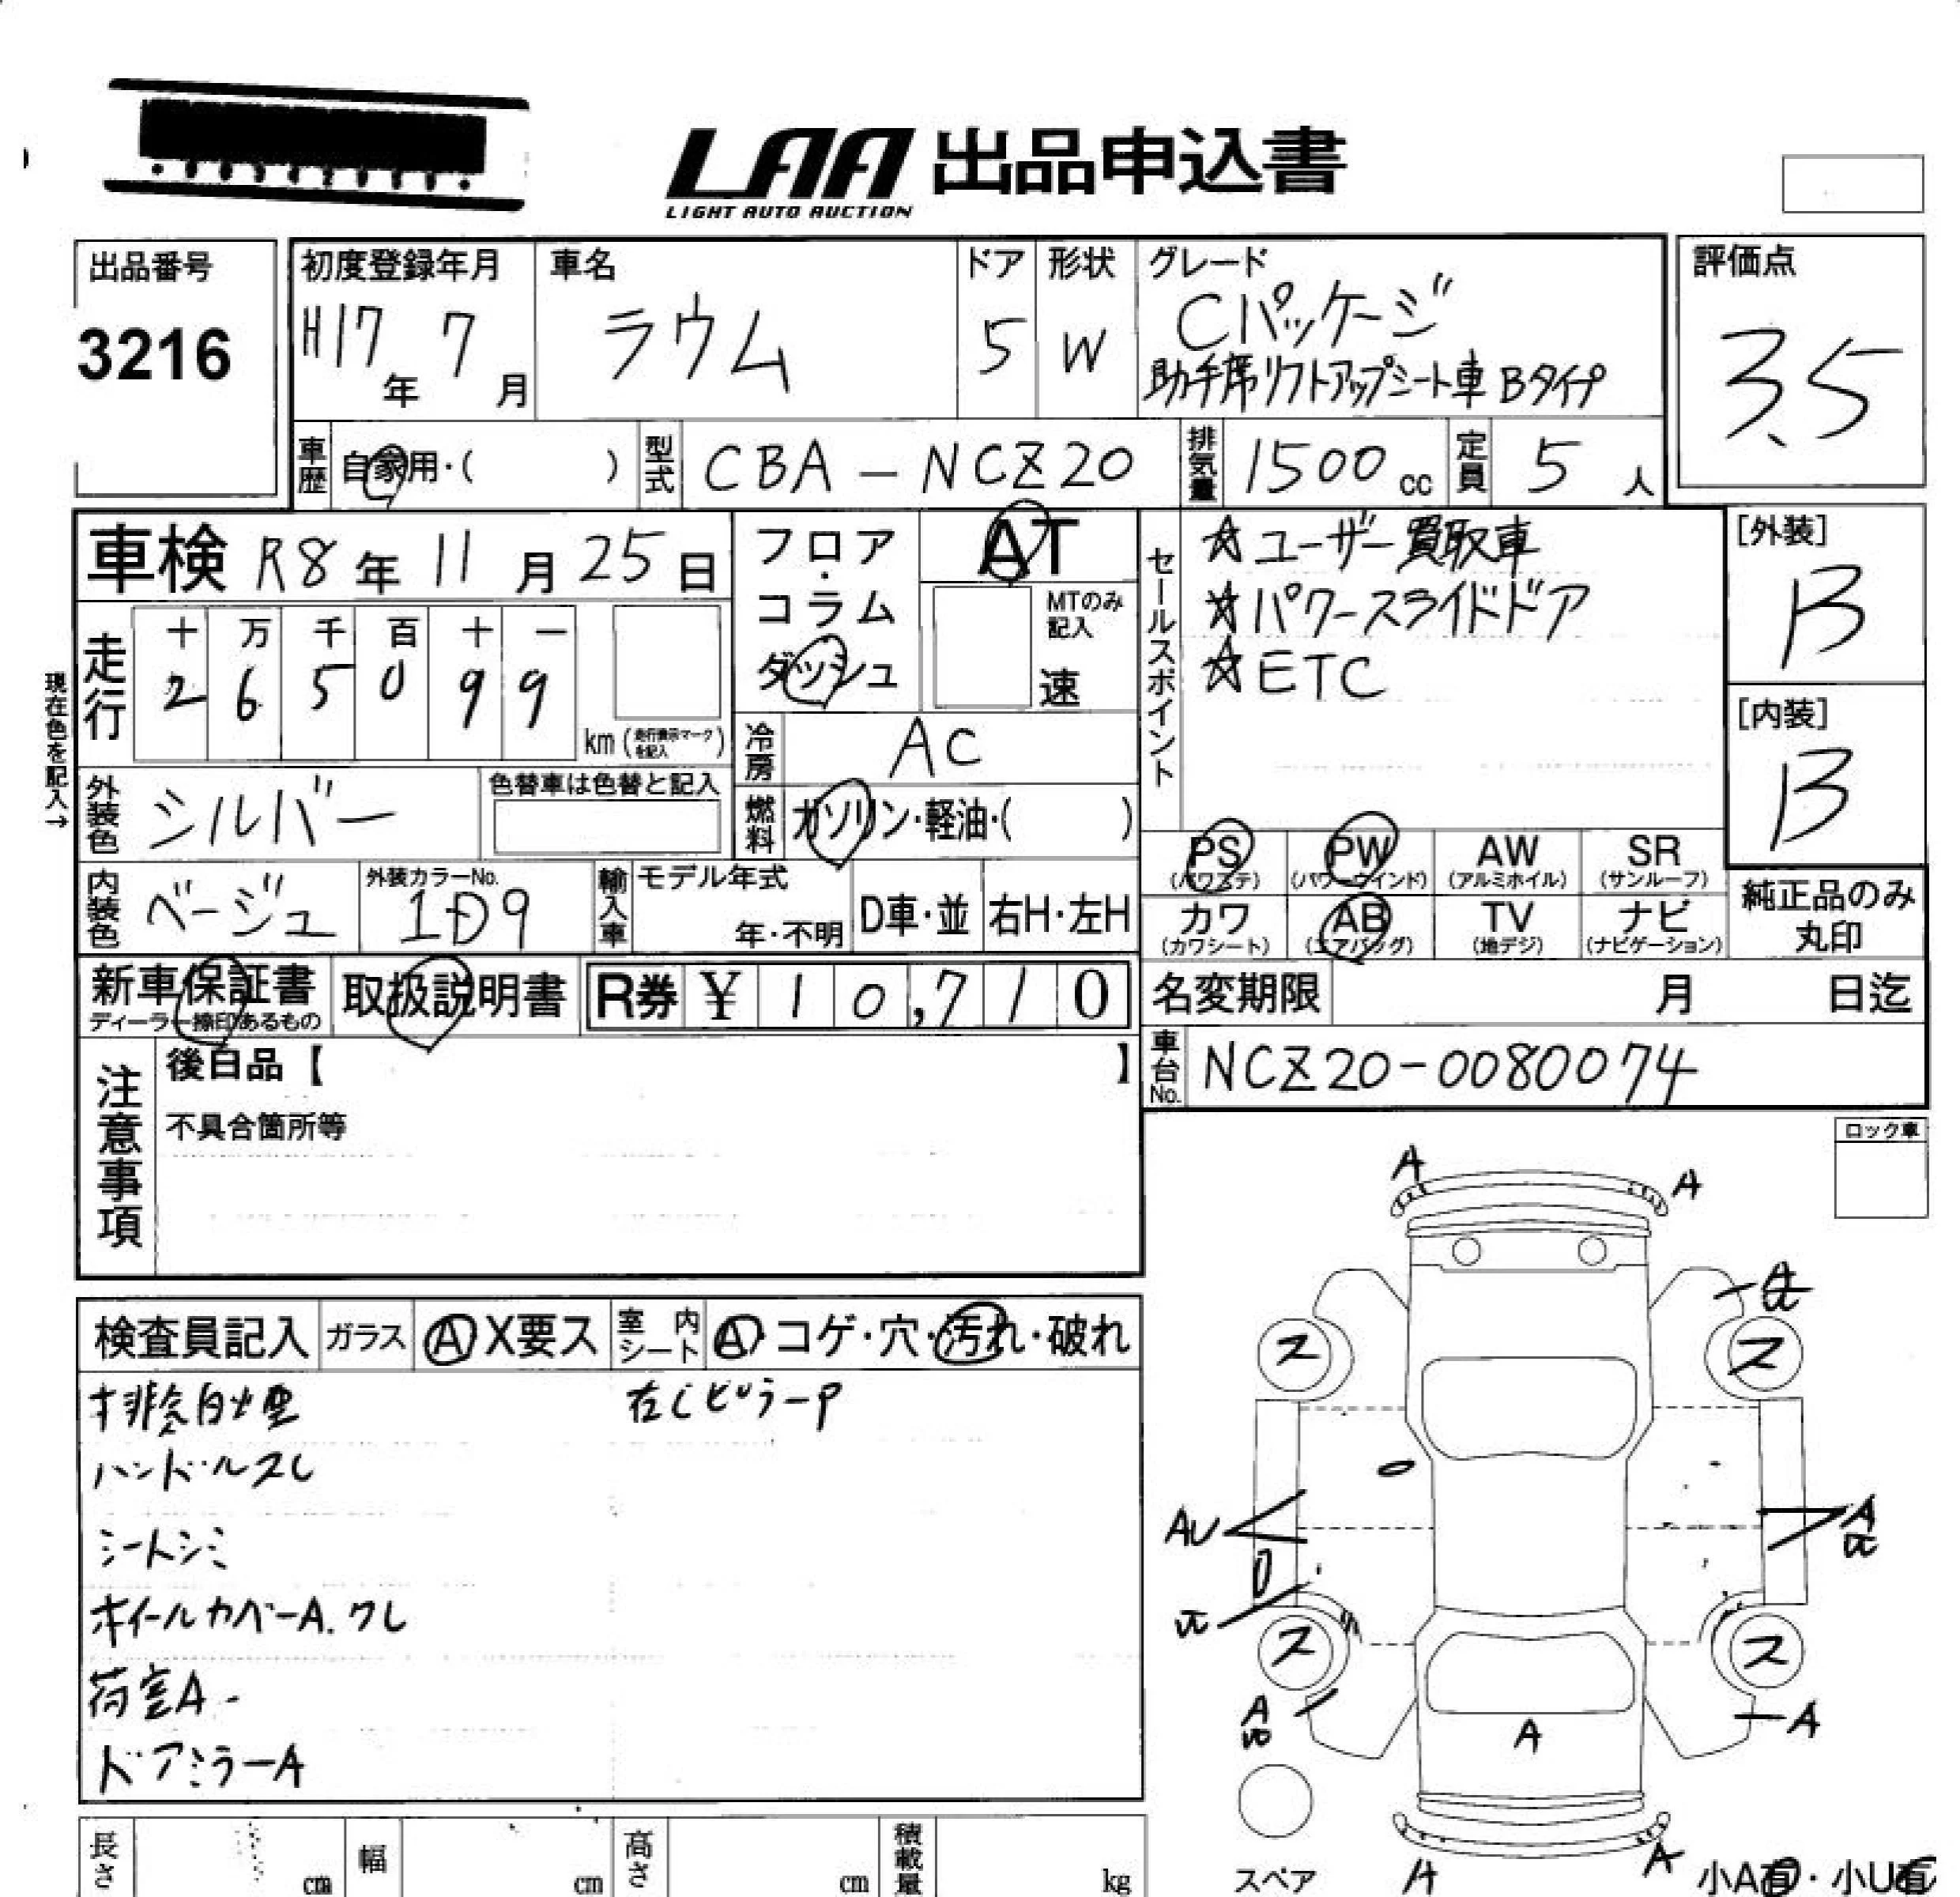 LAA 出品申込書
LIGHT AUTO AUCTION
出品番号
3216
初度登録年月
H17年 7月
車名
ラウム
ドア
5
形状
W
グレード
Cパッケージ
助手席リフトアップシート車 Bタイプ
評価点
3.5
車歴
自家用・( )
型式
CBA-NCZ20
排気量
1500 cc
定員
5 人
車検 R8年 11月 25日
走行
十 万 千 百 十 一
2 6 5 0 9 9
km (走行表示マークを記入)
現在色を記入→
フロア・コラム
ダッシュ
AT
MTのみ記入
速
冷房
AC
燃料
ガソリン・軽油・( )
セールスポイント
☆ユーザー買取車
☆パワースライドドア
☆ETC
[外装]
B
[内装]
B
外装色
シルバー
色替車は色替と記入
内装色
ベージュ
外装カラーNo.
1D9
輸入車
モデル年式
年・不明
D車・並
右H・左H
PS
(パワステ)
PW
(パワーウインド)
AW
(アルミホイル)
SR
(サンルーフ)
カワ
(カワシート)
AB
(エアバッグ)
TV
(地デジ)
ナビ
(ナビゲーション)
純正品のみ
丸印
新車保証書
ディーラー捺印あるもの
取扱説明書
R券 ¥ 10,710
名変期限 月 日迄
車台No.
NCZ20-0080074
注意事項
後日品【 】
不具合箇所等
ロック車
検査員記入
ガラス
A X要ス
室内シート
A・コゲ・穴・汚れ・破れ
排気白煙
右CピラーP
ハンドルスレ
シートシミ
ホイールカバーA.ワレ
荷室A
ドアミラーA
A
A
ス
ス
AU
A
ス
ス
A
A
A
A
A
スペア
小A有・小U有
長さ cm
幅 cm
高さ cm
積載量 kg